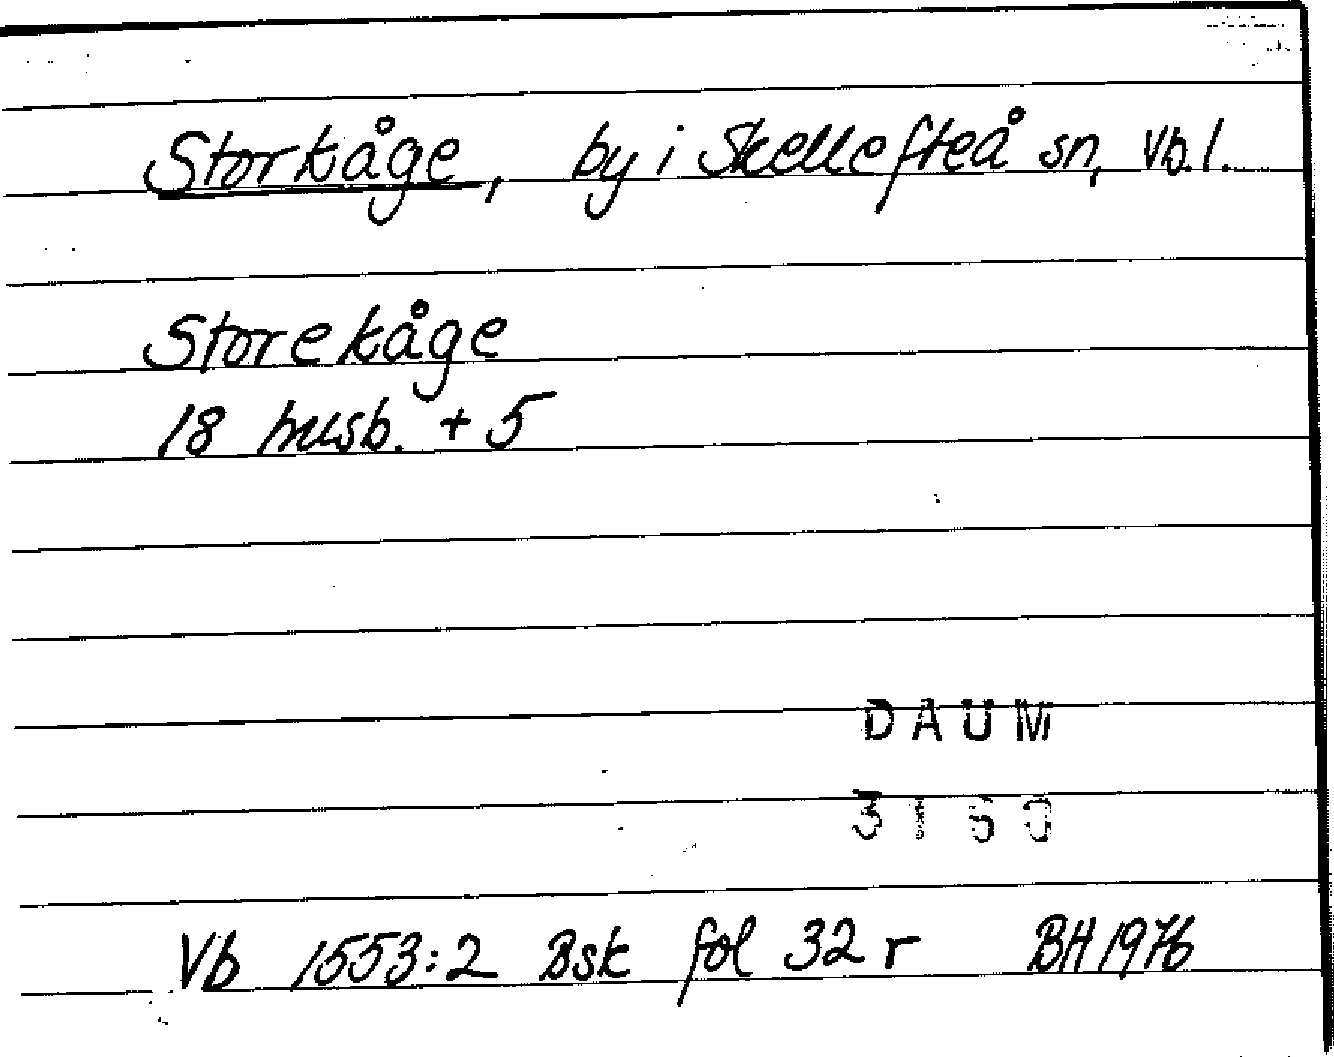 Storkåge, by i Skellefteå sn, Vb.l.
Storekåge
18 husb. + 5
DAUM
3160
Vb 1553:2 Bsk fol 32 r BH 1976